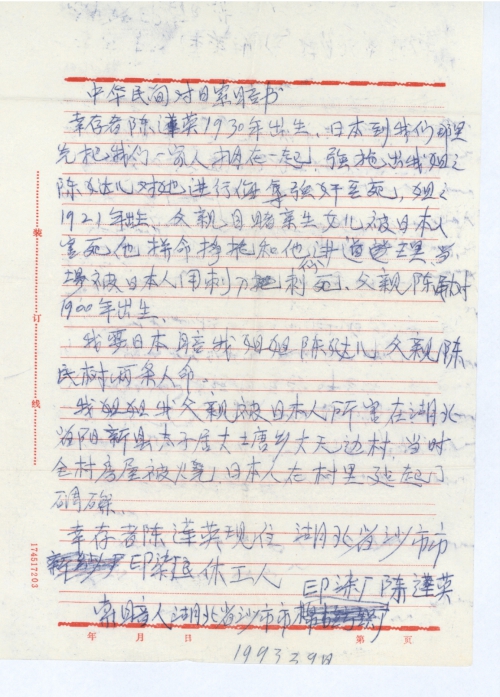 中华民间对日索赔书
幸存者陈蓮英1930年出生、日本到我们那里
先把我们一家人捆在一起，强拖出我姐之
陈妖儿对她进行侮辱强奸至死，姐之
1921年出生、父親目睹亲生女儿被日本人
害死他拼命挣扎和他讲道理、当
場被日本人用刺刀刺死、父親陈
1900年出生、
我要日本赔我姐姐陈妖儿、父親陈
民树两条人命。
我姐姐我父親被日本人所害在湖北
省阳新县太子居大土唐乡大天边村、当时
全村房屋被火烧，日本人在村里建起了
碉碌、
幸存者陈蓮英现住湖北省沙市市
印染厂退休工人
印染厂陈蓮英
索赔人湖北省沙市市棉
装
订
线
174517203
年 月 日 第 页
1993 3 9日